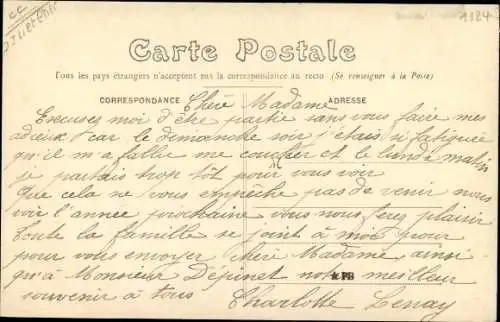 1124
Carte Postale
Tous les pays étrangers n'acceptent pas la correspondance au recto (Se renseigner à la Poste)
CORRESPONDANCE Chère Madame ADRESSE
Excusez moi d'être partie sans vous faire mes
adieux car le dimanche soir j'étais si fatiguée
qu'il m'a fallu me coucher et le lundi matin
je partais trop tôt pour vous voir
Que cela ne vous empêche pas de venir nous
voir l'année prochaine vous nous ferez plaisir
toute la famille se joint à moi pour
pour vous envoyer chère Madame, ainsi
qu'à Monsieur Dépinet notre meilleur
souvenir à tous Charlotte Lenay
PB